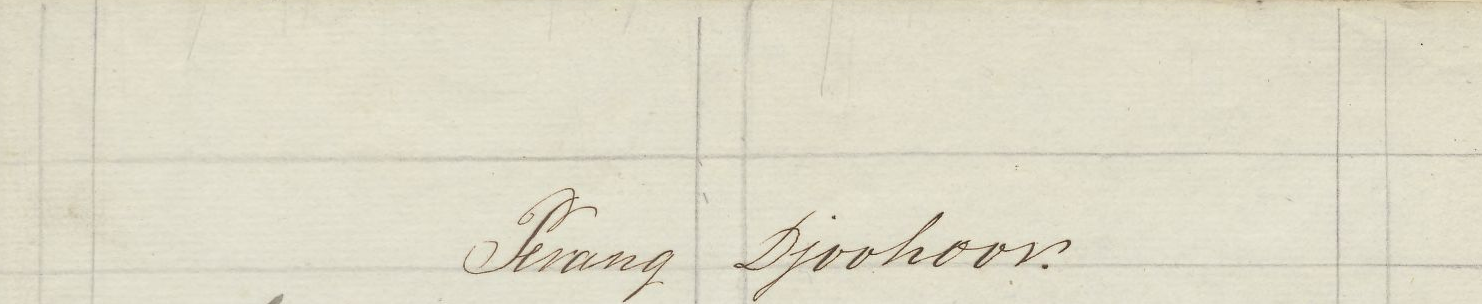 Perang Djoohoor.